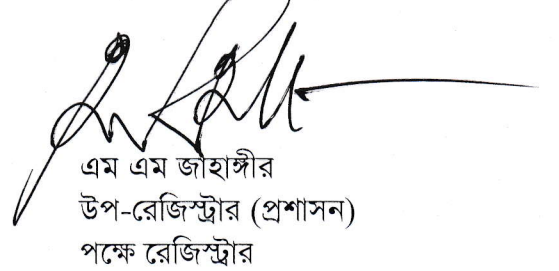 এম এম জাহাঙ্গীর
উপ-রেজিস্ট্রার (প্রশাসন)
পক্ষে রেজিস্ট্রার